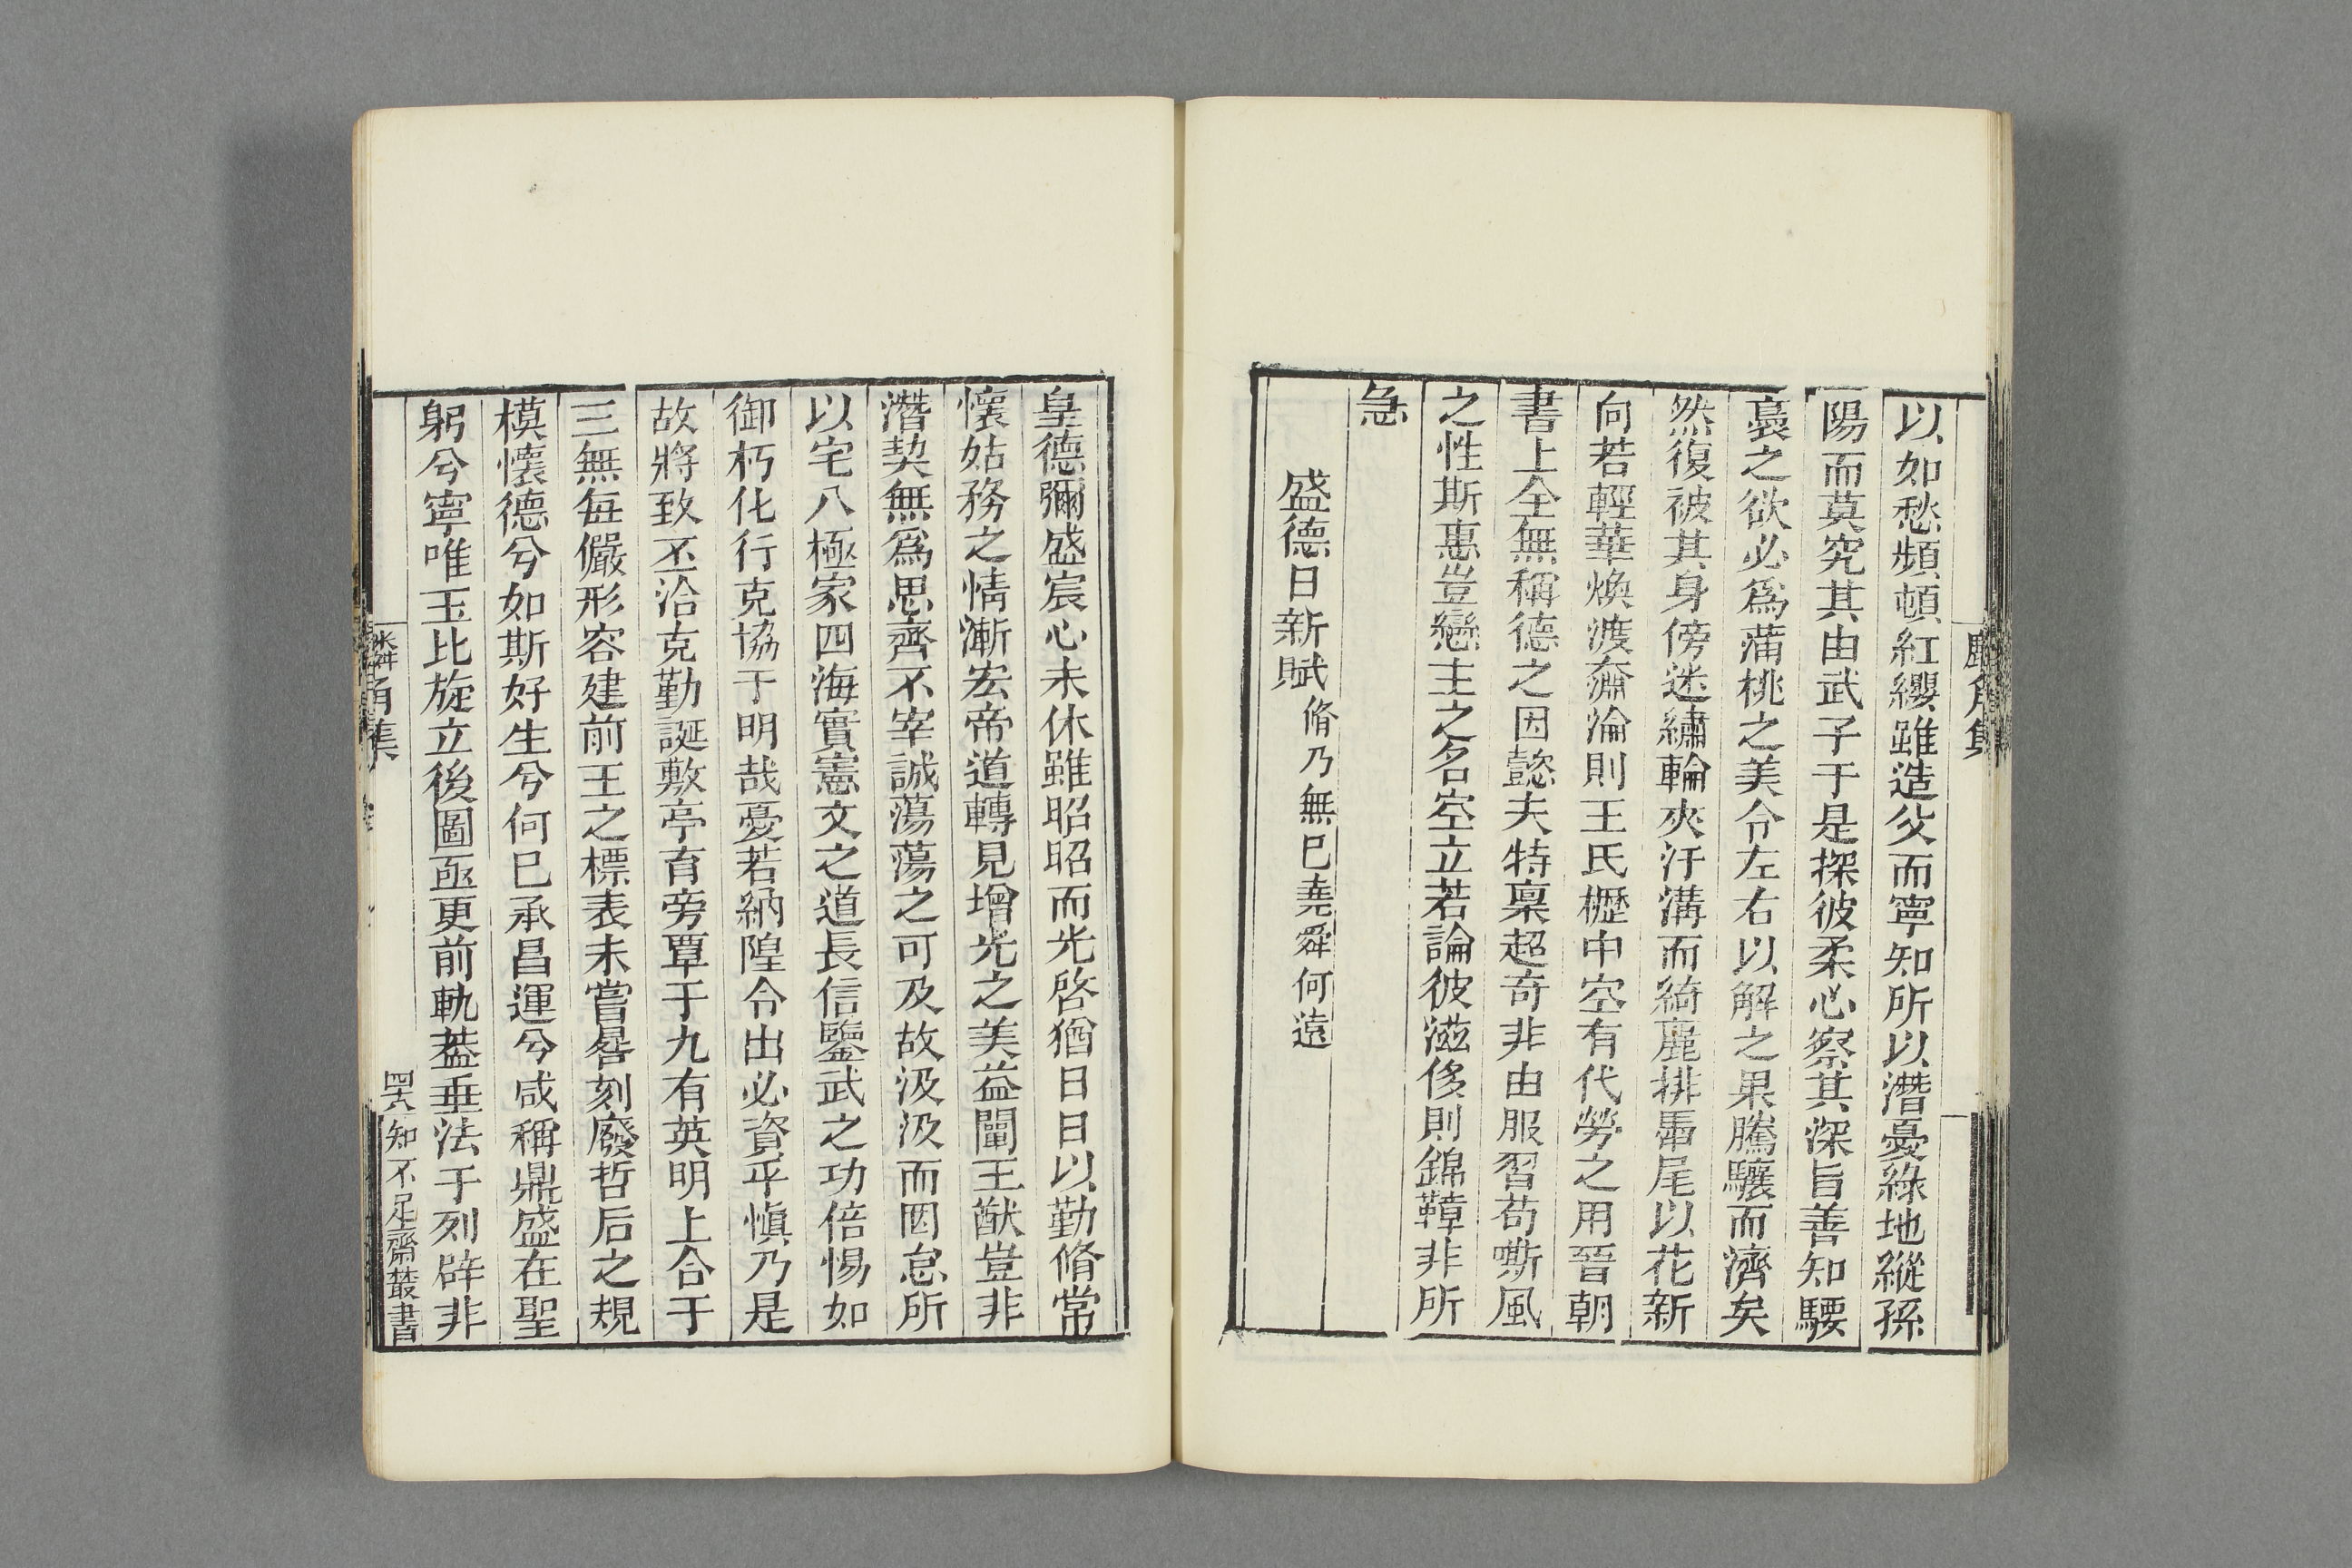 麟角集
以如愁頻頓紅纓雖造父而寧知所以潛憂綠地縱孫
陽而莫究其由武子于是探彼柔心察其深旨善知騕
褭之欲必爲蒲桃之美令左右以解之果騰驤而濟矣
然復被其身傍迷繡輪夾汙溝而綺麗排畢尾以花新
向若輕華煥渡奫淪則王氏櫪中空有代勞之用晉朝
書上全無稱德之因懿夫特稟超奇非由服習苟嘶風
之性斯惠豈戀主之名空立若論彼滋侈則錦鞾非所
急
盛德日新賦脩乃無已堯舜何遠
皇德彌盛宸心未休雖昭昭而光啓猶日日以勤脩常
懷姑務之情漸宏帝道轉見增光之美益闡王猷豈非
潛契無爲思齊不宰誠蕩蕩之可及故汲汲而罔怠所
以宅八極家四海實憲文之道長信鑒武之功倍惕如
御朽化行克協于明哉憂若納隍令出必資乎愼乃是
故將致丕洽克勤誕敷亭育旁覃于九有英明上合于
三無每儼形容建前王之標表未嘗晷刻廢哲后之規
模懷德兮如斯好生兮何已承昌運兮咸稱鼎盛在聖
躬兮寧唯玉比旋立後圖亟更前軌葢垂法于列辟非
麟角集
罡知不足齋叢書